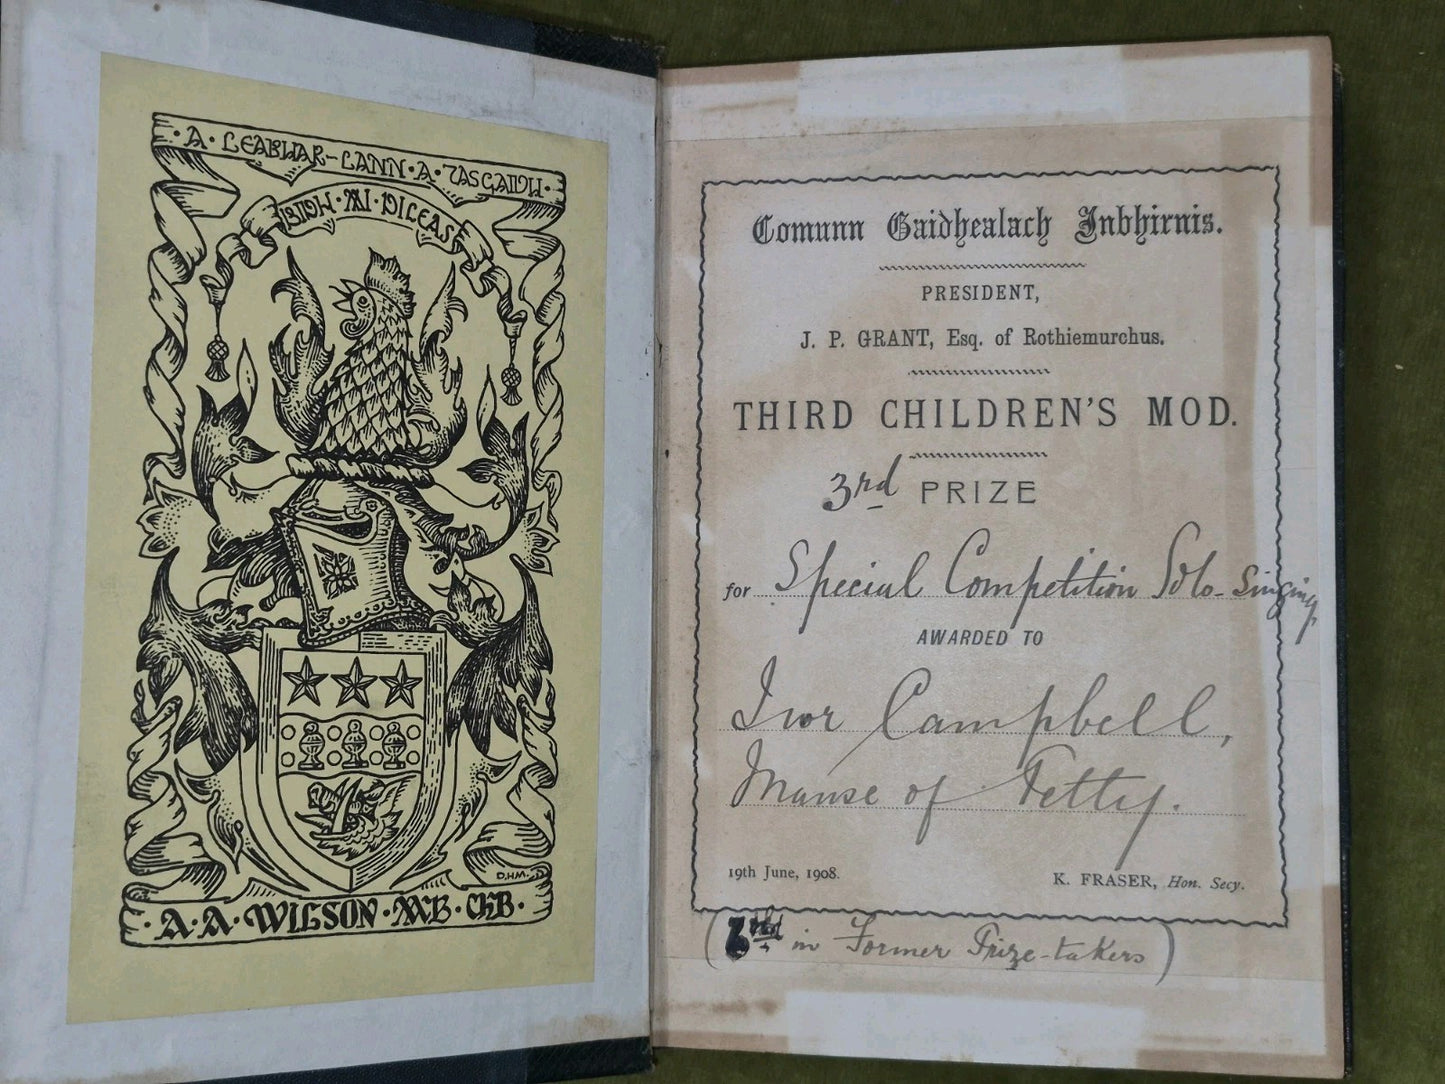 ·A·LEABHAR-LANN·A·TASGAIDH·
BIDH·MI·DILEAS
D.H.M.
·A·A·WILSON·MB·CHB·
Comunn Gaidhealach Inbhirnis.
PRESIDENT,
J. P. GRANT, Esq. of Rothiemurchus.
THIRD CHILDREN'S MOD.
3rd PRIZE
for Special Competition Solo-Singing
AWARDED TO
Ivor Campbell,
Manse of Petty.
19th June, 1908. K. FRASER, Hon. Secy.
( 3rd in Former Prize-takers )